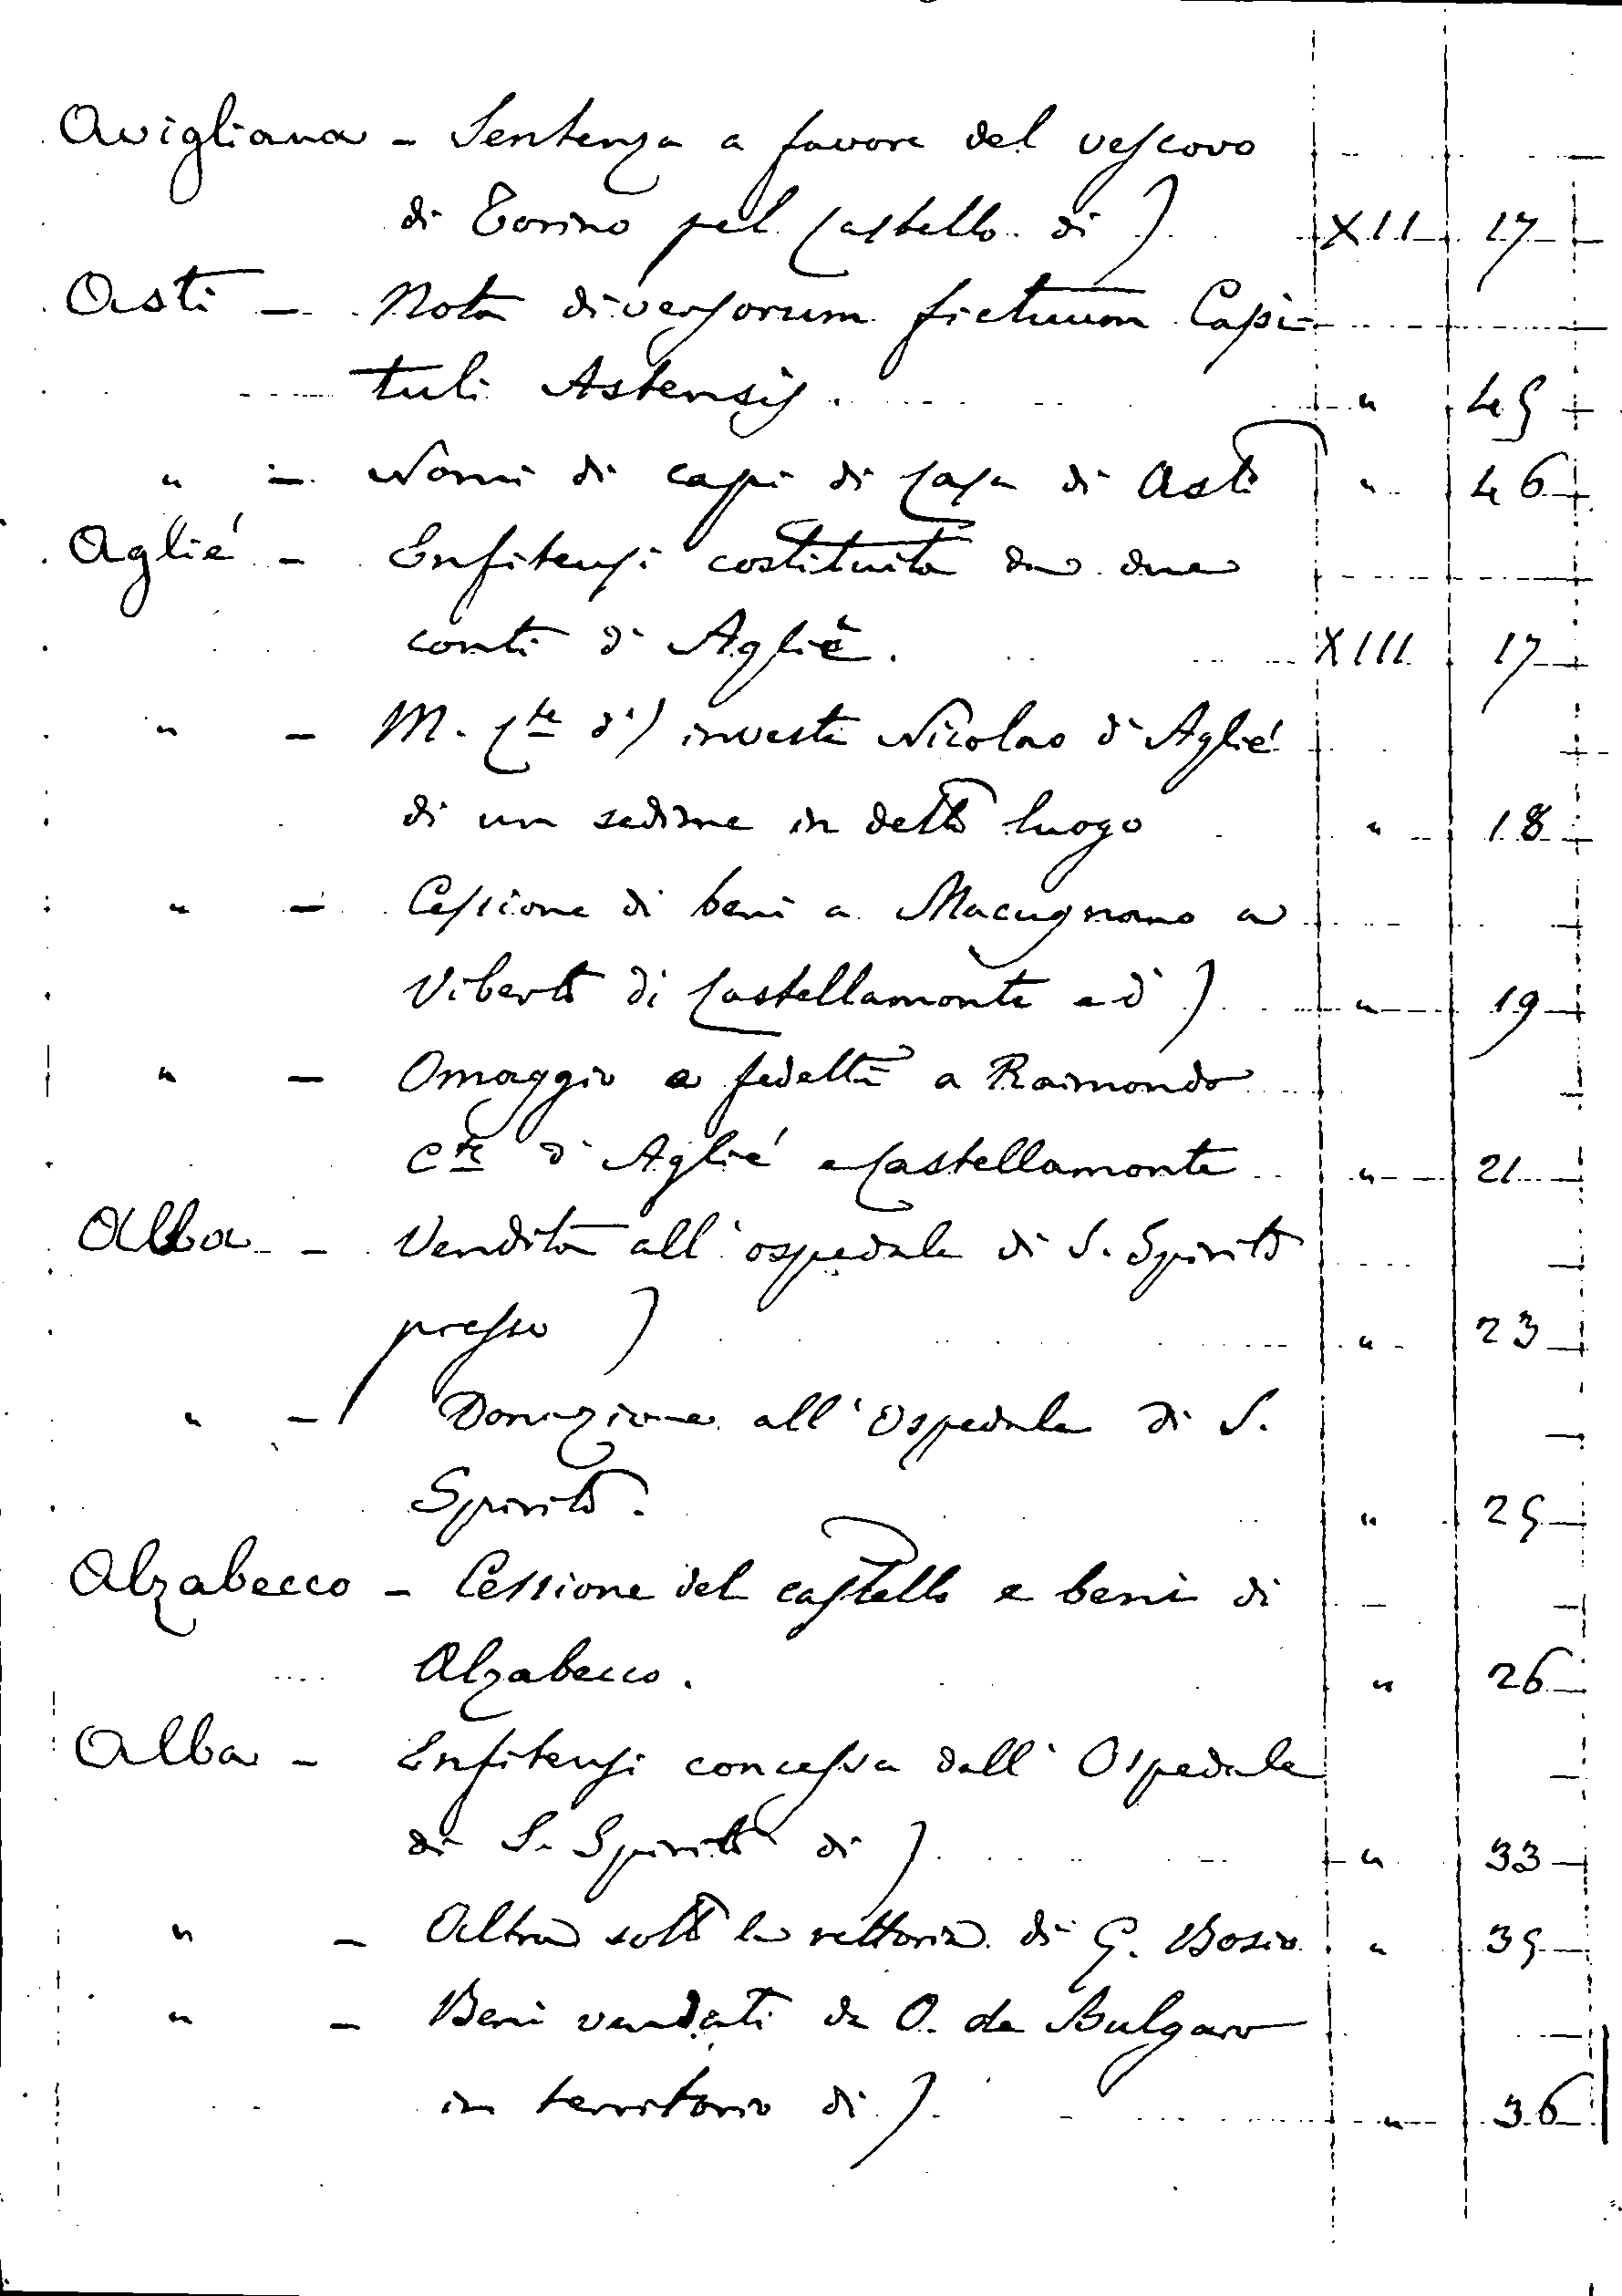 Avigliana - Sentenza a favore del vescovo
di Torino pel Castello di ) XII 17
Asti - Nota diversorum fictuum Capi-
tuli Astensis. " 45
" - Nomi di capi di Casa di Asti " 46
Aglié - Enfiteusi costituita da due
conti d'Agliè. XIII 17
" - M. (te d') investe Nicolao d'Aglié
di un sedime in detto luogo " 18
" - Cessione di beni a Macugnano a
Viberto di Castellamonte e d' ) " 19
" - Omaggio e fedeltà a Raimondo
Cte d'Aglié e Castellamonte " 21
Alba - Vendita all'ospedale di S. Spirito
presso ) " 23
" - Donazione all'Ospedale di S.
Spirito. " 25
Alzabecco - Cessione del castello e beni di
Alzabecco. " 26
Alba - Enfiteusi concessa dall'Ospedale
di S. Spirito di ) " 33
" - Altra sotto la rettoria di G. Bosio " 35
" - Beni venduti da O. de Bulgaro
in territorio di ) " 36